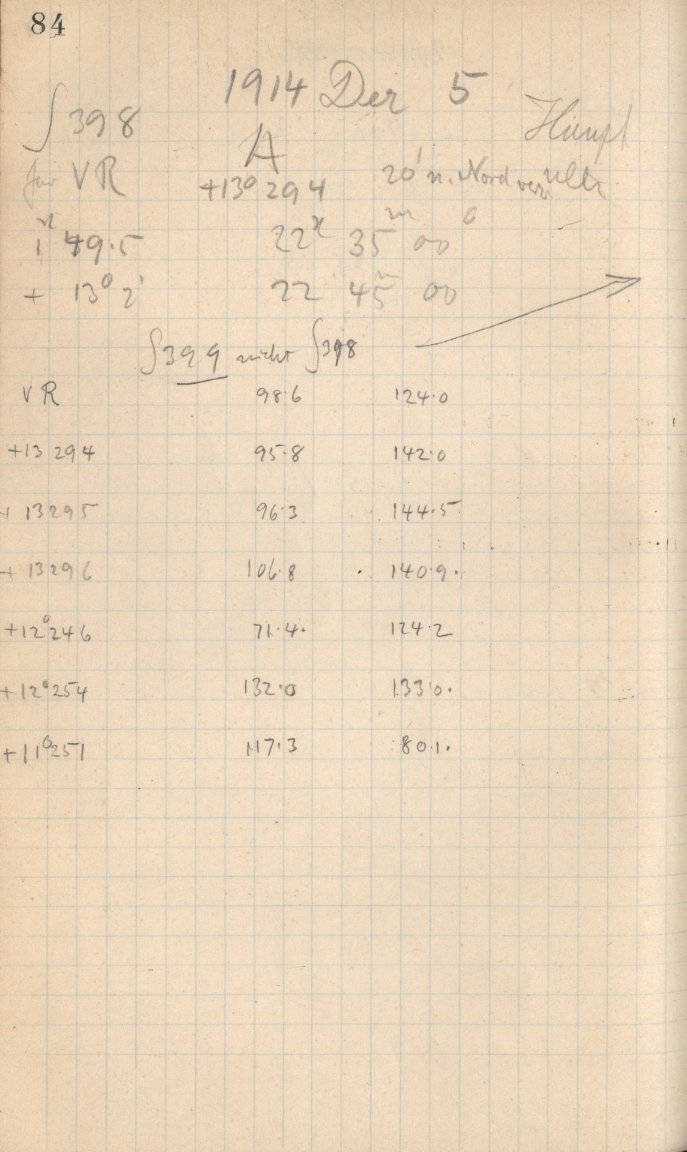 84
1914 Dez 5
∫398 A
für VR +13° 294 20' n. Nord
1ʰ 49.5 22ʰ 35ᵐ 00ˢ
+ 13° 2' 22 45ᵐ 00
∫399 nicht ∫398
VR 98.6 124.0
+13 294 95.8 142.0
+ 13295 96.3 144.5
+ 13296 106.8 140.9.
+12°246 71.4. 124.2
+12°254 132.0 133.0.
+11°251 117.3 80.1.